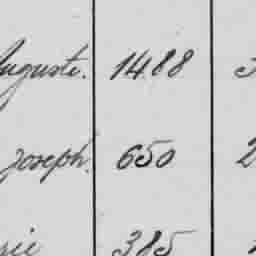 Auguste. 1488
Joseph. 650 2
385